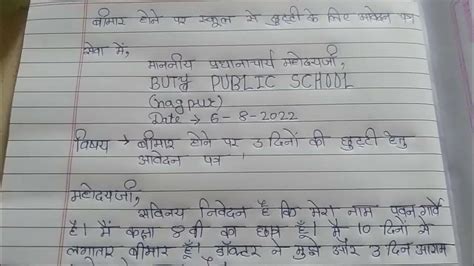 बीमार होने पर स्कूल से छुट्टी के लिए आवेदन पत्र
सेवा में,
माननीय प्रधानाचार्य महोदयजी,
BUTY PUBLIC SCHOOL
(nagpur)
Date → 6-8-2022
विषय → बीमार होने पर 3 दिनों की छुट्टी हेतु
आवेदन पत्र।
महोदयजी,
सविनय निवेदन है कि मेरा नाम पवन गार्वे
है। मैं कक्षा 8 वी का छात्र हूँ। मैं 10 दिनों से
लगातार बीमार हूँ। डॉक्टर ने मुझे और 3 दिन आराम